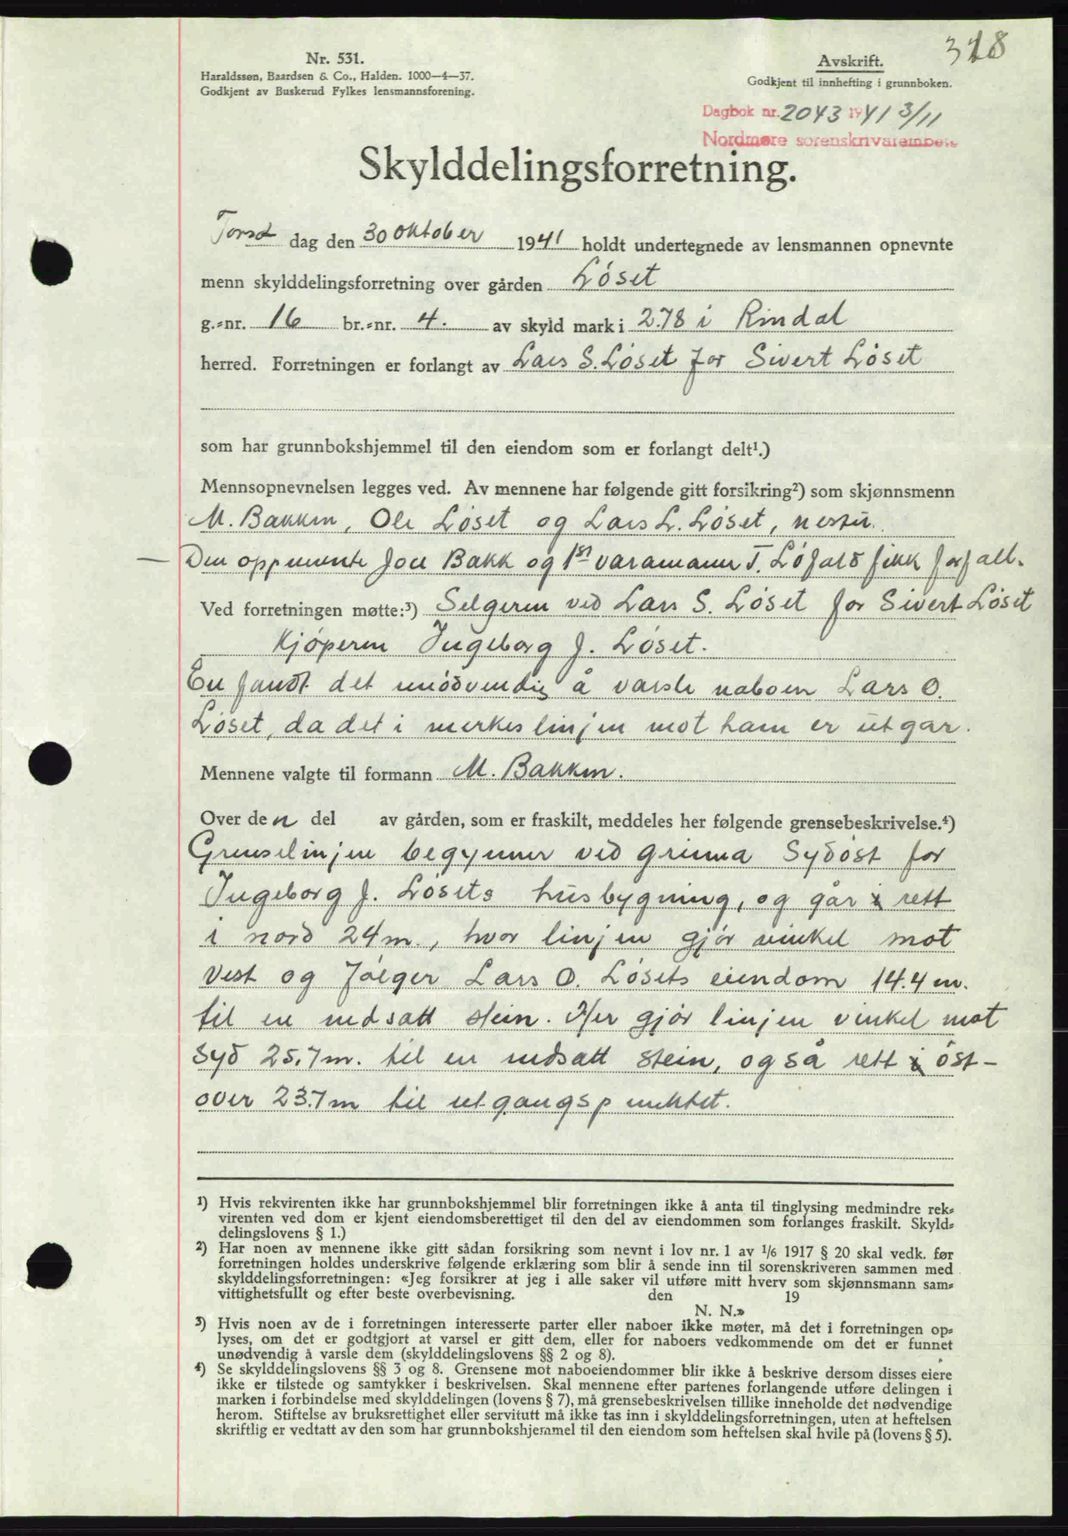 318
Nr. 531.
Haraldssøn, Baardsen & Co., Halden. 1000—4—37.
Godkjent av Buskerud Fylkes lensmannsforening.
Avskrift.
Godkjent til innhefting i grunnboken.
Dagbok nr. 2043 1941 3/11
Nordmøre sorenskriverembete
Skylddelingsforretning.
Torsdag den 30 oktober 1941 holdt undertegnede av lensmannen opnevnte
menn skylddelingsforretning over gården Löset
g.=nr. 16 br.=nr. 4. av skyld mark i 2.78 i Rindal
herred. Forretningen er forlangt av Lars S. Löset for Sivert Löset
som har grunnbokshjemmel til den eiendom som er forlangt delt¹.)
Mennsopnevnelsen legges ved. Av mennene har følgende gitt forsikring²) som skjønnsmenn
M. Bakken, Ole Löset og Lars L. Löset, nestu.
— Den oppnevnte Jou Bakk og 1st varamann T. Löfald fikk forfall.
Ved forretningen møtte:³) Selgeren ved Lars S. Löset for Sivert Löset
Kjöperen Ingeborg J. Löset.
En fandt det unödvendig å varsle naboen Lars O.
Löset, da det i merkeslinjen mot ham er utgar.
Mennene valgte til formann M. Bakken.
Over den del av gården, som er fraskilt, meddeles her følgende grensebeskrivelse.⁴)
Grenselinjen begynner ved grinna Sydöst for
Ingeborg J. Lösets husbygning, og går rett
i nord 24 m., hvor linjen gjör vinkel mot
vest og fölger Lars O. Lösets eiendom 14.4 m.
til en nedsatt stein. Her gjör linjen vinkel mot
syd 25.7 m. til en nedsatt stein, og så rett öst-
over 23.7 m til utgangspunktet.
¹) Hvis rekvirenten ikke har grunnbokshjemmel blir forretningen ikke å anta til tinglysing medmindre rek=
virenten ved dom er kjent eiendomsberettiget til den del av eiendommen som forlanges fraskilt. Skyld=
delingslovens § 1.)
²) Har noen av mennene ikke gitt sådan forsikring som nevnt i lov nr. 1 av 1/6 1917 § 20 skal vedk. før
forretningen holdes underskrive følgende erklæring som blir å sende inn til sorenskriveren sammen med
skylddelingsforretningen: «Jeg forsikrer at jeg i alle saker vil utføre mitt hverv som skjønnsmann sam=
vittighetsfullt og efter beste overbevisning. den 19
N. N.»
³) Hvis noen av de i forretningen interesserte parter eller naboer ikke møter, må det i forretningen op=
lyses, om det er godtgjort at varsel er gitt dem, eller for naboers vedkommende om det er funnet
unødvendig å varsle dem (skylddelingslovens §§ 2 og 8).
⁴) Se skylddelingslovens §§ 3 og 8. Grensene mot naboeiendommer blir ikke å beskrive dersom disses eiere
ikke er tilstede og samtykker i beskrivelsen. Skal mennene efter partenes forlangende utføre delingen i
marken i forbindelse med skylddelingen (lovens § 7), må grensebeskrivelsen tillike inneholde det nødvendige
herom. Stiftelse av bruksrettighet eller servitutt må ikke tas inn i skylddelingsforretningen, uten at heftelsen
skriftlig er vedtatt av den som har grunnbokshjemmel til den eiendom som heftelsen skal hvile på (lovens § 5).